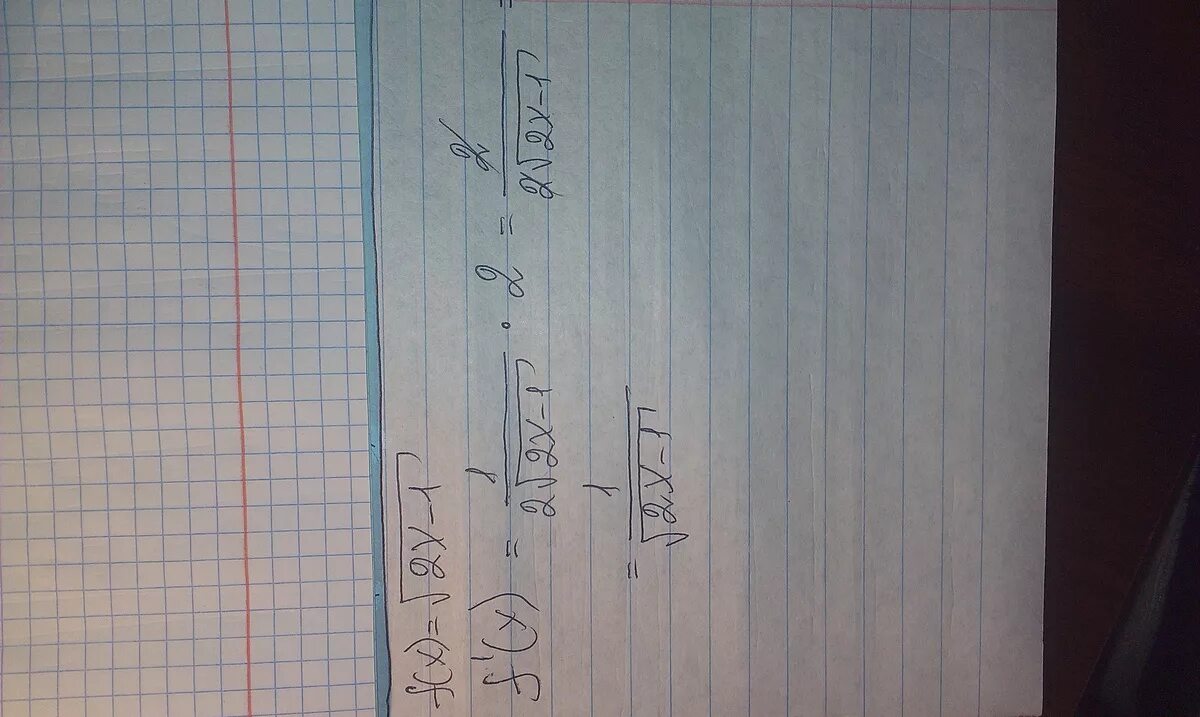 f(x) = √(2x-1)
f'(x) = 1/(2√(2x-1)) · 2 = 2/(2√(2x-1)) =
= 1/√(2x-1)